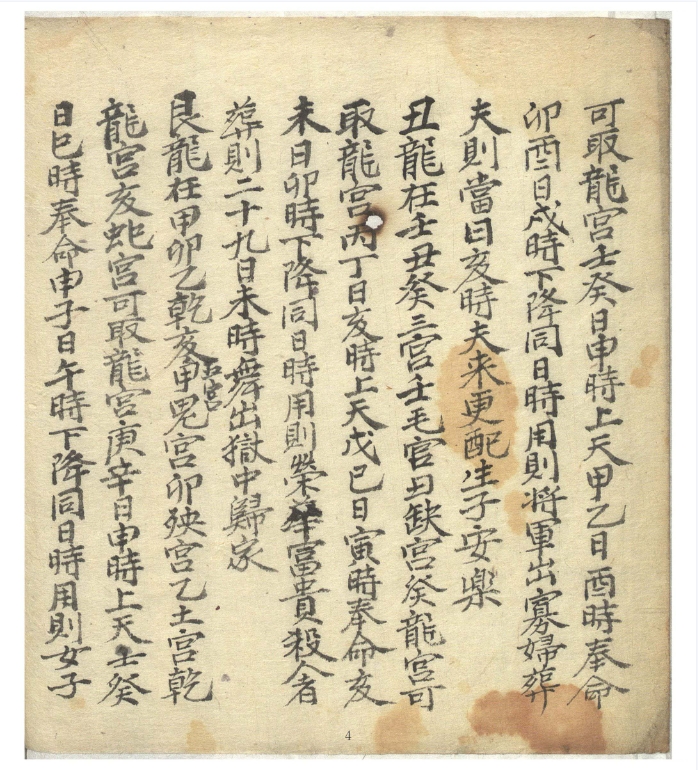 可取龍宮壬癸日申時上天甲乙日酉時奉命
卯酉日戌時下降同日時用則将軍出寡婦葬
夫則當日亥時夫来更配生子安樂
丑龍在壬丑癸三宮壬毛宮丑缺宮癸龍宮可
取龍宮丙丁日亥時上天戊己日寅時奉命亥
未日卯時下降同日時用則榮華富貴殺人者
葬則二十九日未時舞出獄中歸家
艮龍在甲卯乙乾亥五宮甲鬼宮卯殃宮乙土宮乾
龍宮亥蛇宮可取龍宮庚辛日申時上天壬癸
日巳時奉命申子日午時下降同日時用則女子
4